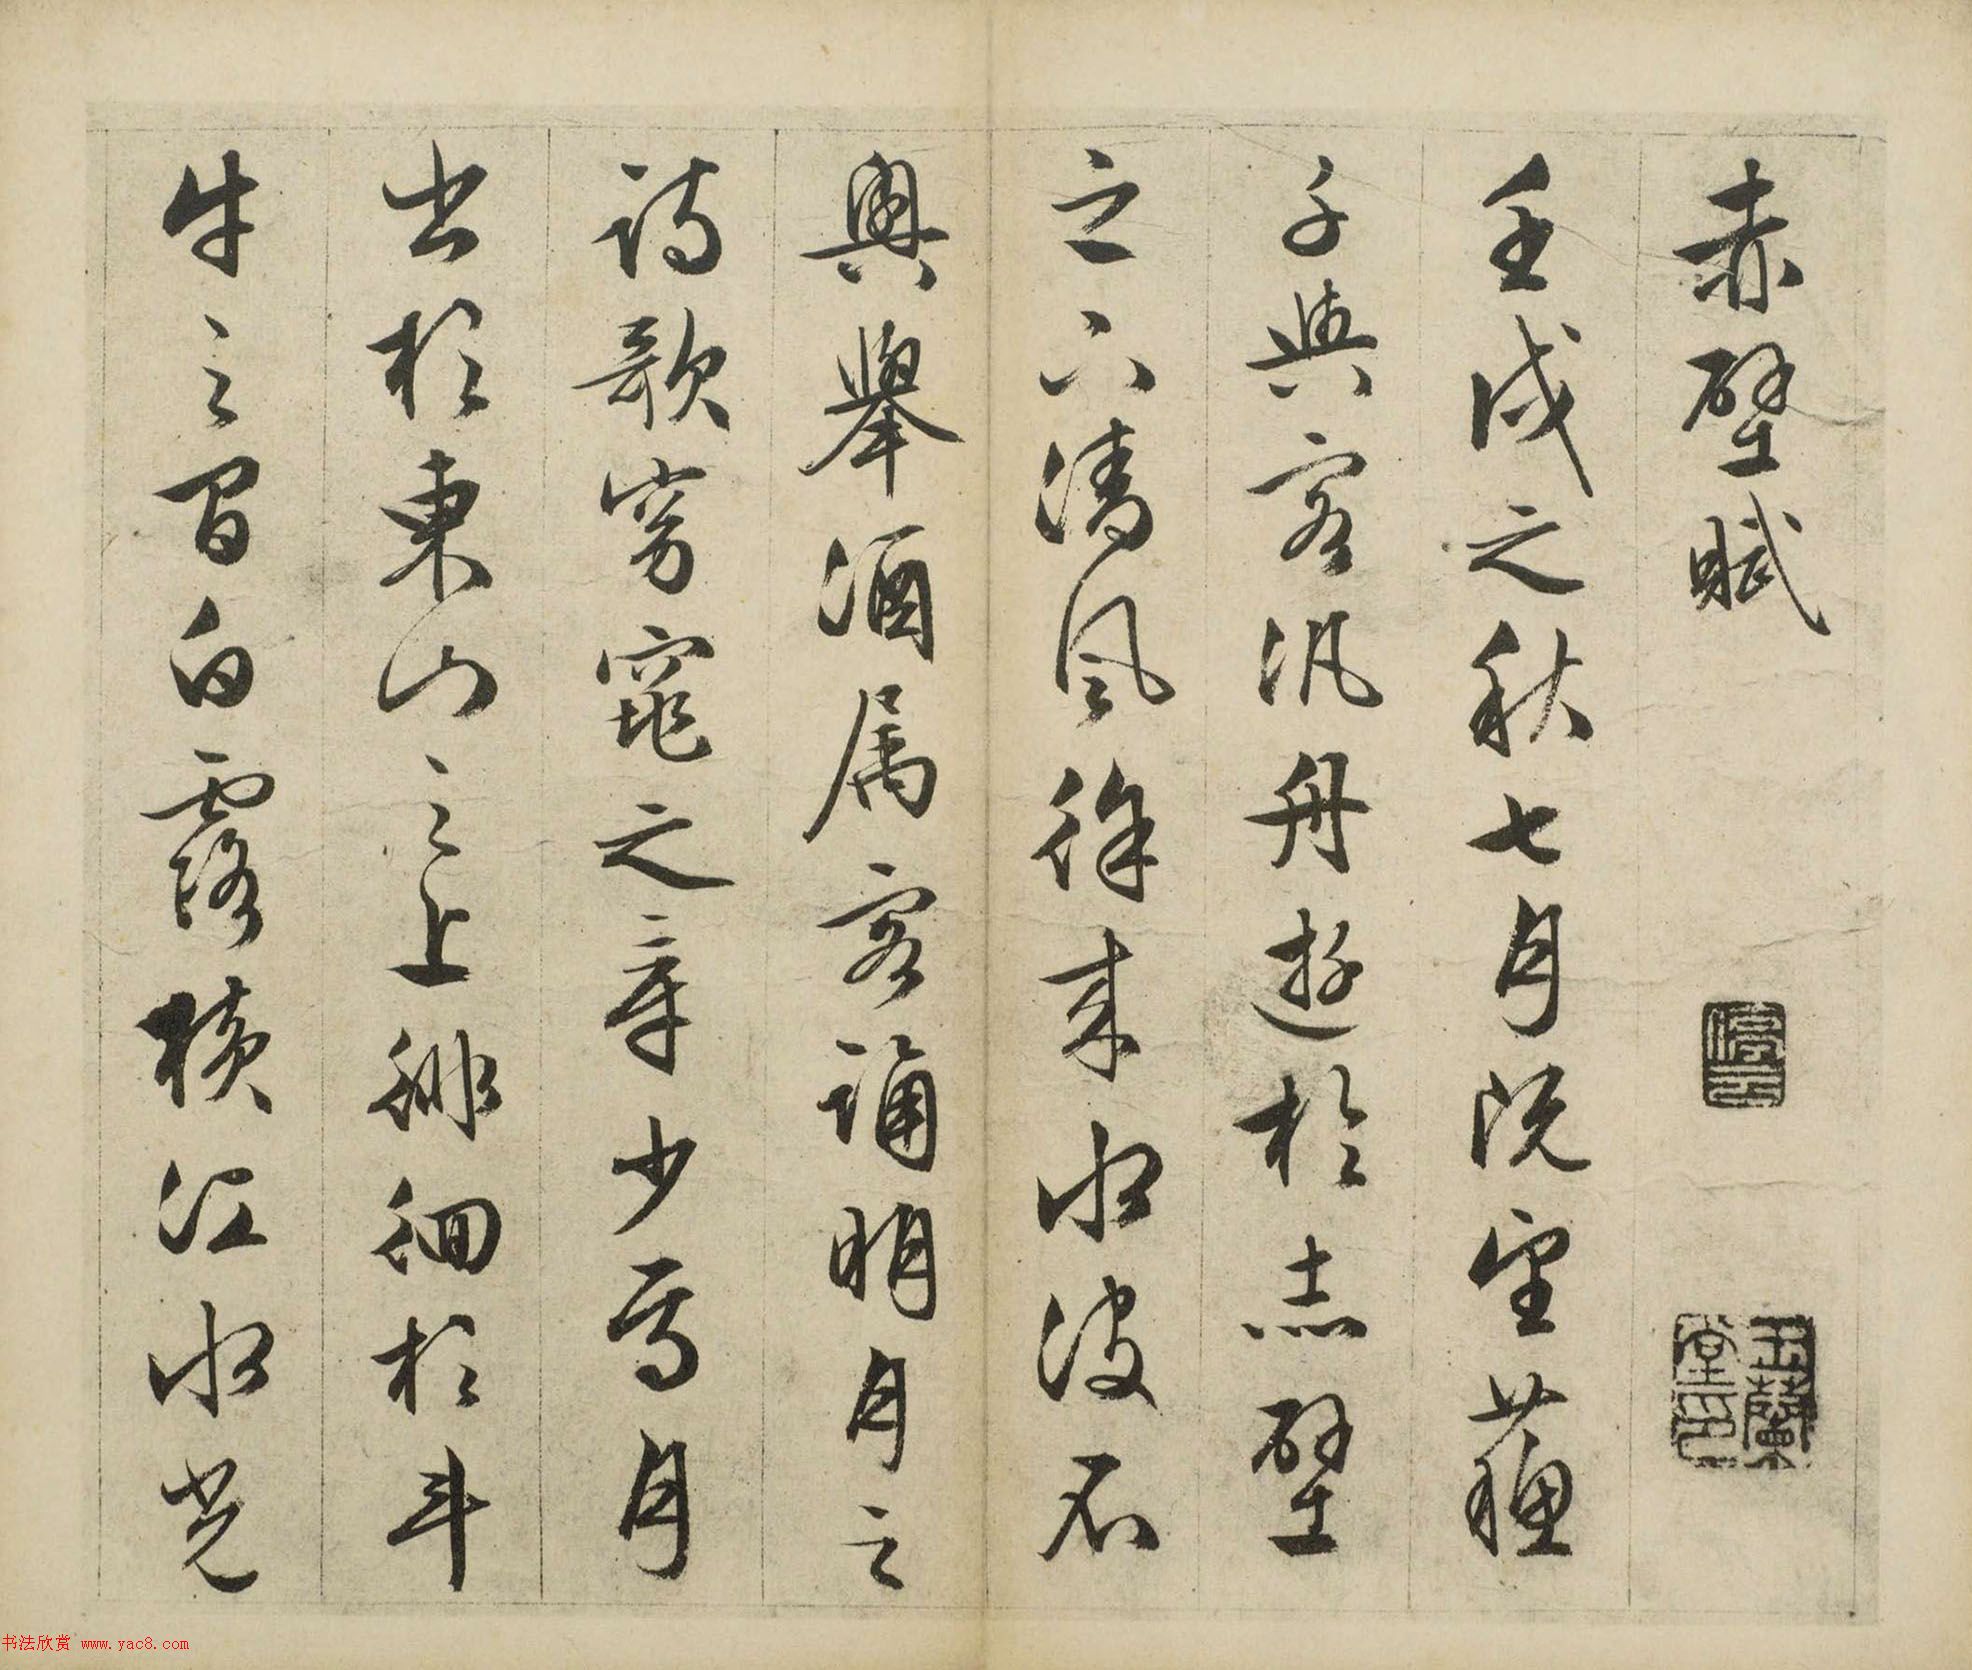 赤壁賦
停雲
玉蘭堂印
壬戌之秋七月既望蘇
子與客汎舟遊於赤壁
之下清風徐來水波不
興舉酒属客誦明月之
詩歌窈窕之章少焉月
出於東山之上徘徊於斗
牛之間白露橫江水光
书法欣赏 www.yac8.com